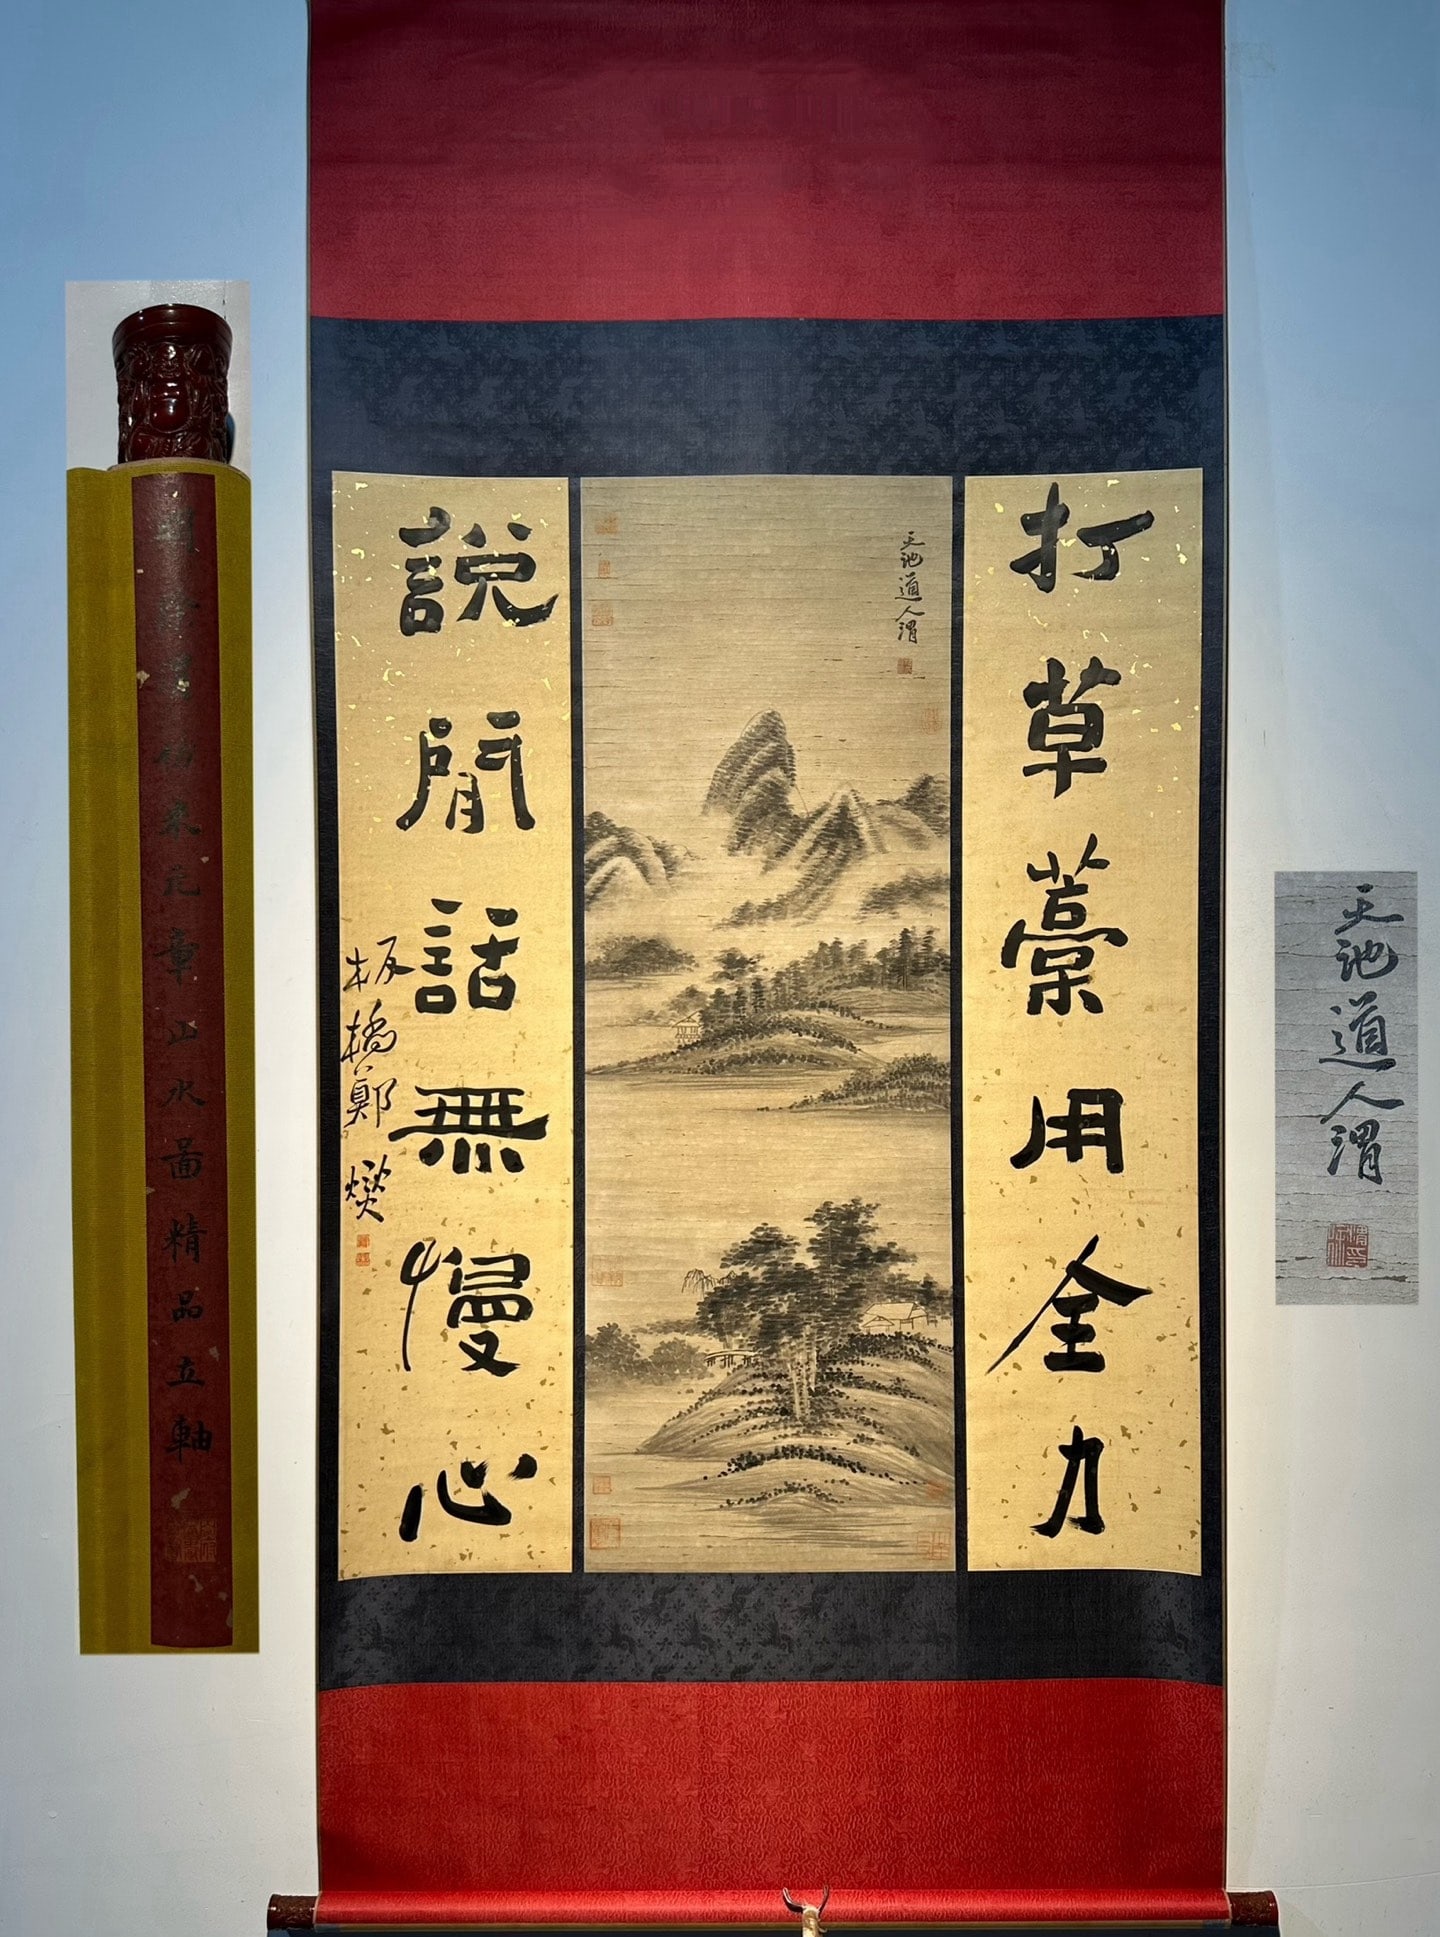 打草藁用全力
天池道人渭
說閒話無慢心
板橋鄭燮
明徐渭仿米元章山水啚精品立軸
天池道人渭